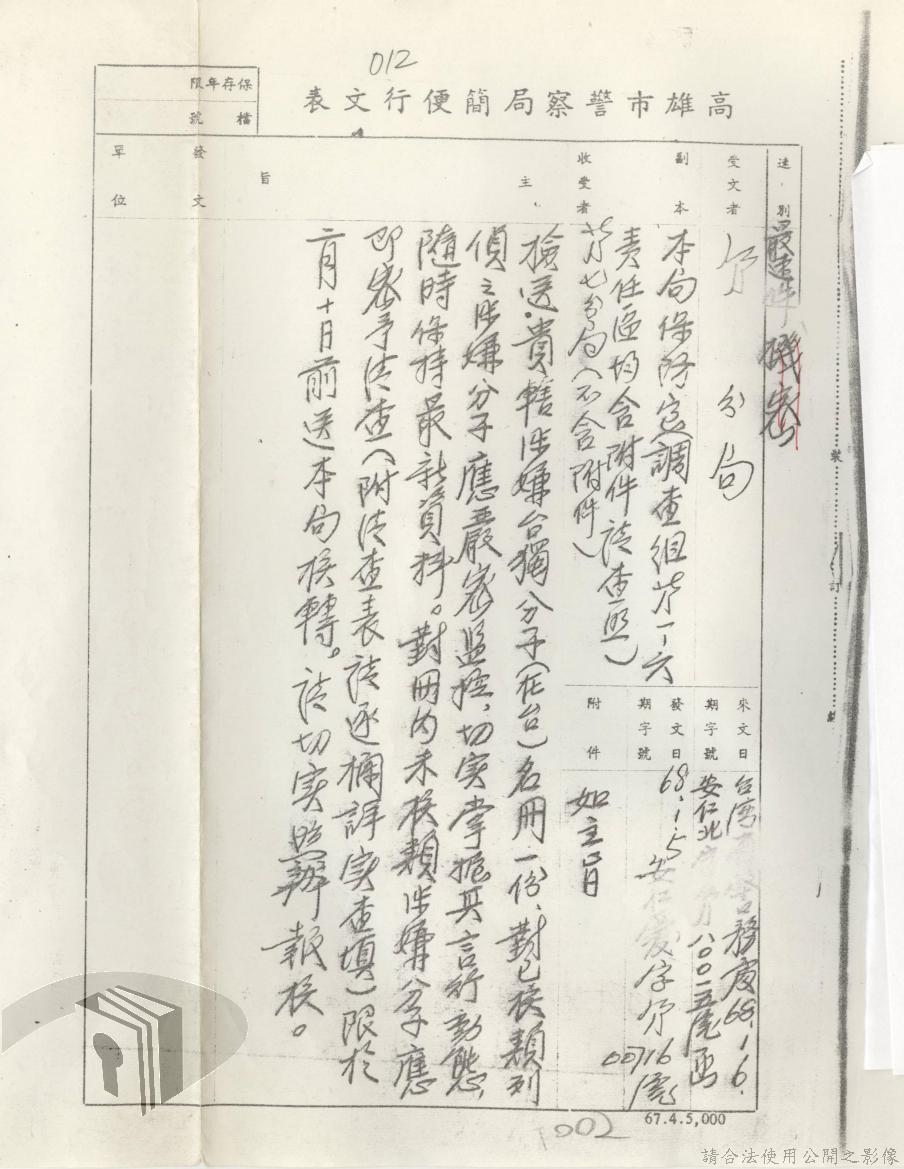 012
高雄市警察局簡便行文表
保存年限
檔號
速別
最速件 機密
受文者
分局
副本收受者
本局保防室(調查組廿一、六
責任區均含附件請查照)
廿七分局(不含附件)
來文日期字號
台灣 警務處68.1.6.
安仁北 八〇〇一五號函
發文日期字號
68.1.5
安仁愛字
00716號
附件
如主旨
主旨
檢送貴轄涉嫌台獨分子(在台)名冊一份,對已核類列
偵之涉嫌分子應嚴密監控,切實掌握其言行動態,
隨時保持最新資料。對冊內未核類涉嫌分子應
即密予清查(附清查表請逐欄詳實查填)限於
二月十日前送本局核轉。請切實照辦報核。
發文單位
裝
訂
67.4.5,000
002
請合法使用公開之影像